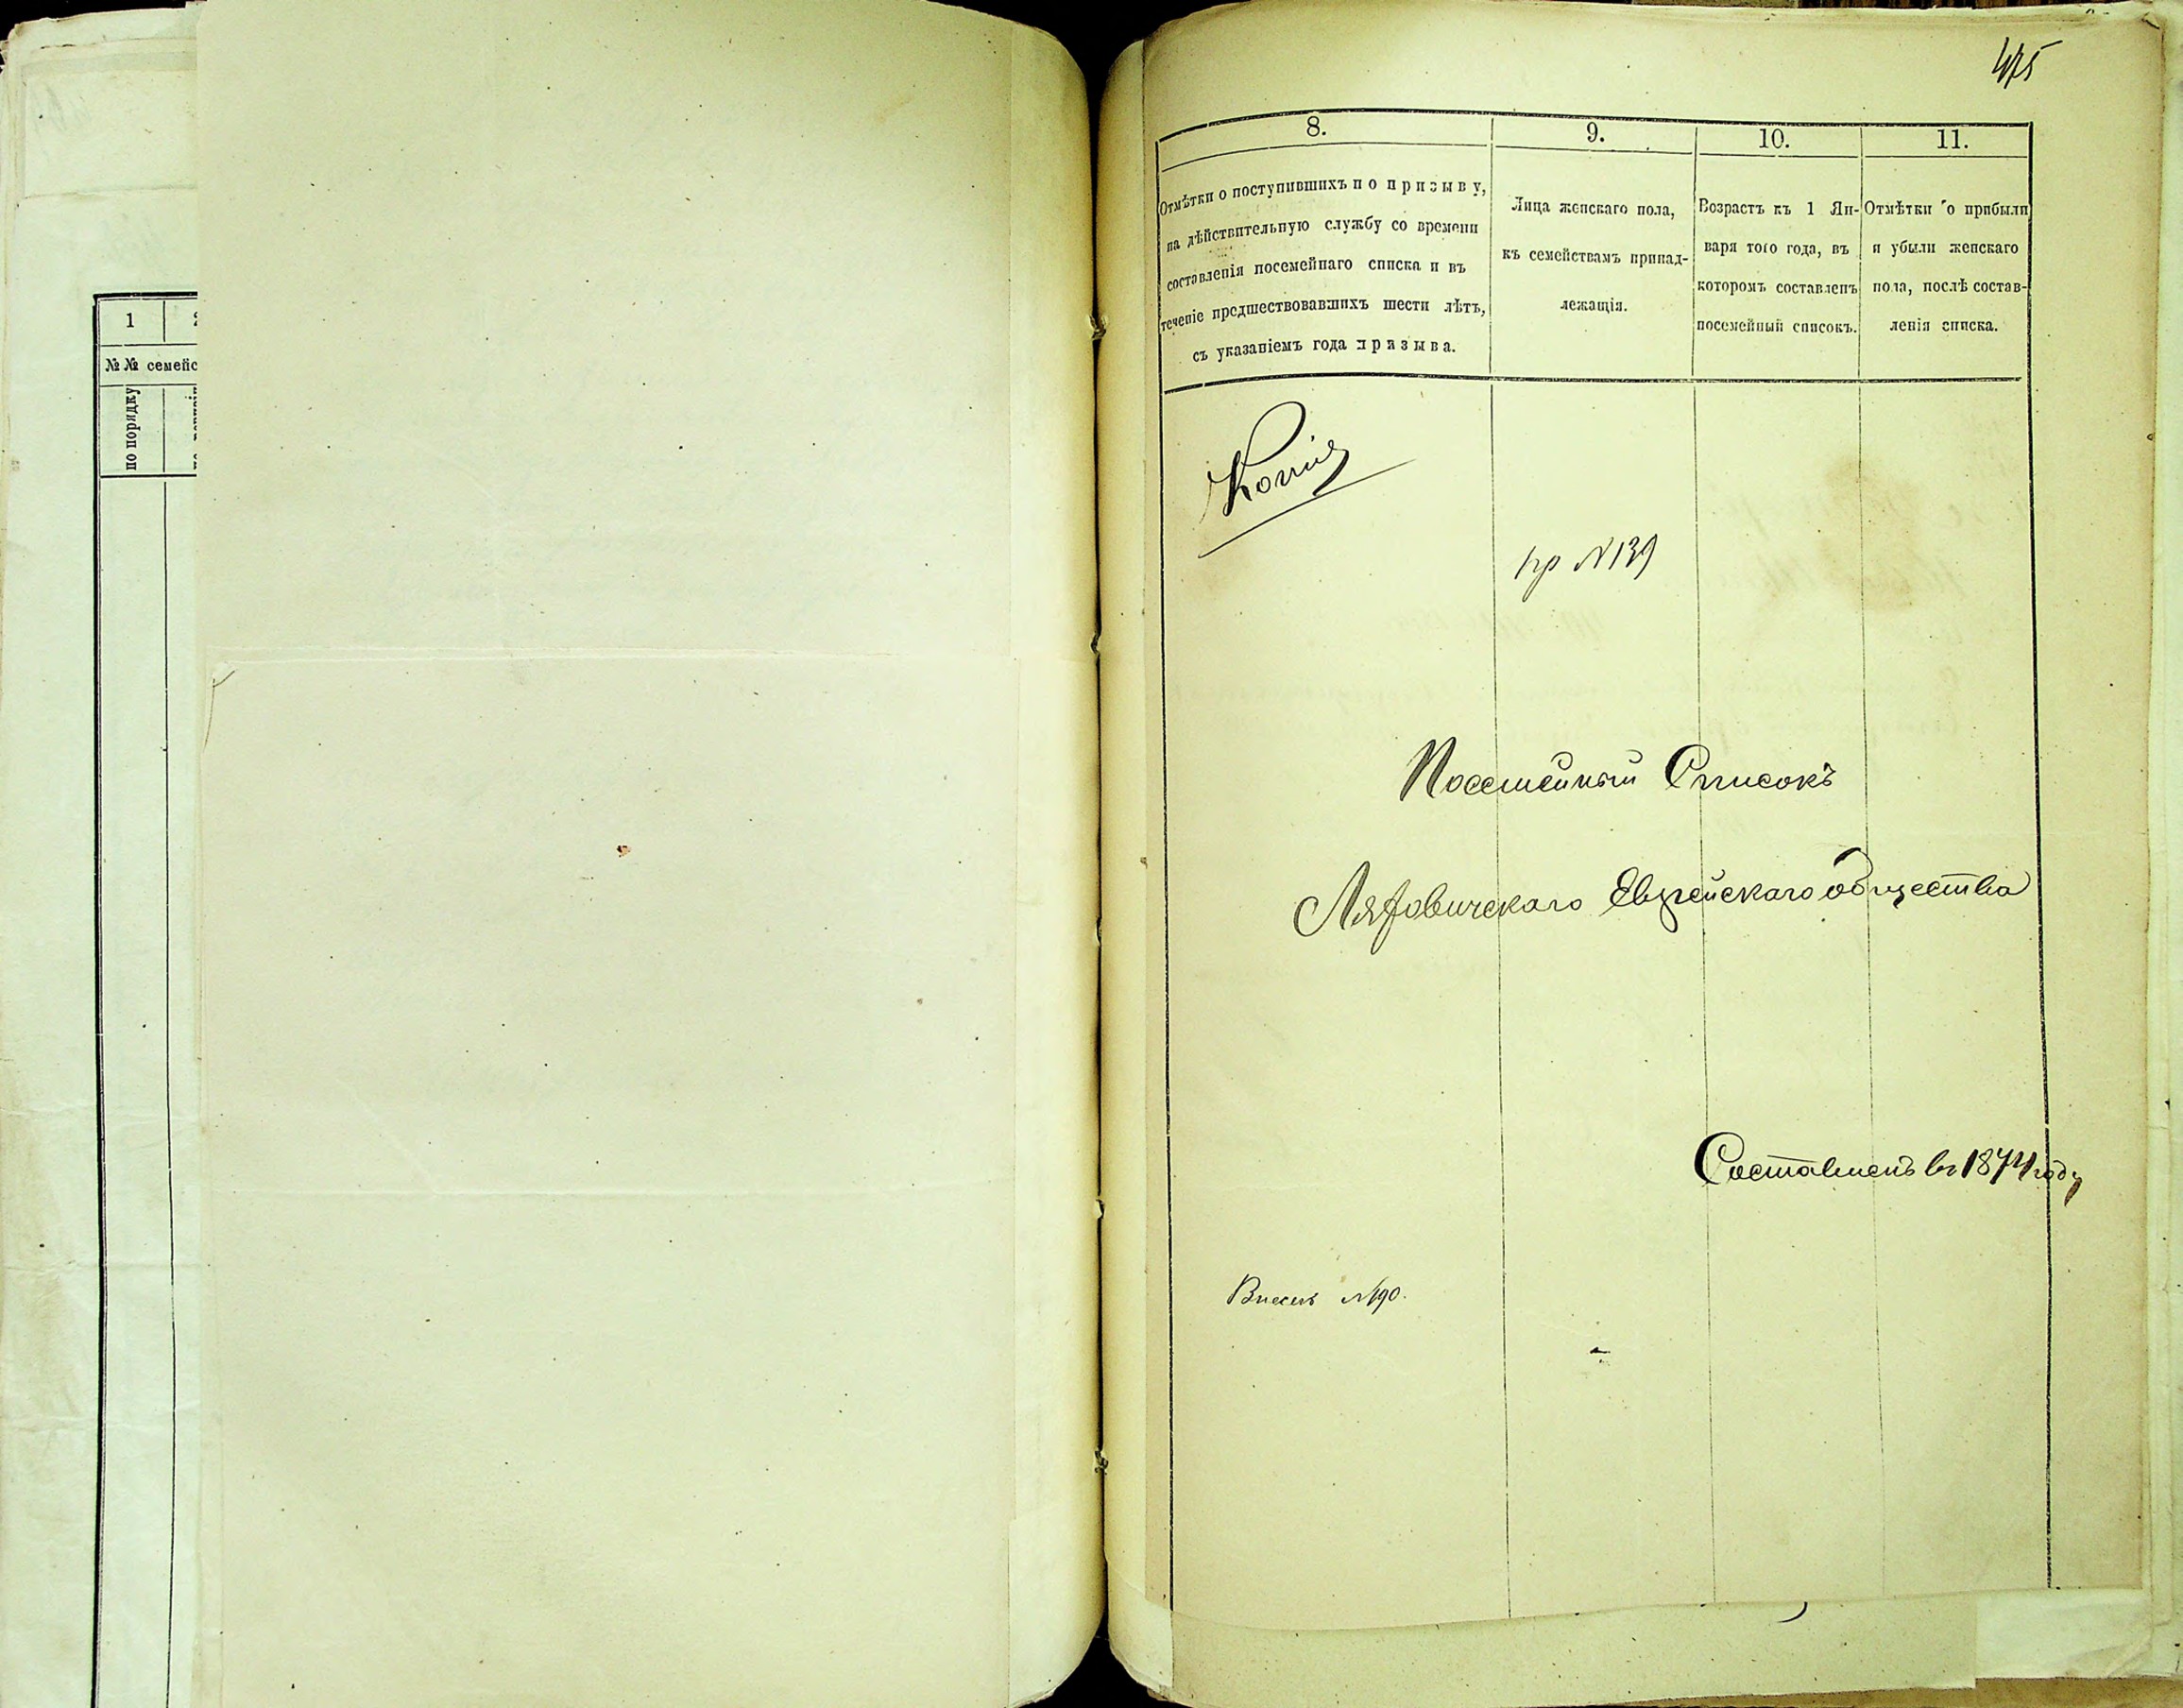 1
№ № семейс
по порядку
475
8.
9.
10.
11.
Отмѣтки о поступившихъ по призыву,
на дѣйствительную службу со времени
составленія посемейнаго списка и въ
теченіе предшествовавшихъ шести лѣтъ,
съ указаніемъ года призыва.
Лица женскаго пола,
къ семействамъ принад-
лежащія.
Возрастъ къ 1 Ян-
варя того года, въ
которомъ составленъ
посемейный списокъ.
Отмѣтки о прибыли
и убыли женскаго
пола, послѣ состав-
ленія списка.
Копія
пр №139
Посемейный Списокъ
Ляховичскаго Еврейскаго общества
Составленъ въ 1874 году
Внесенъ №190.